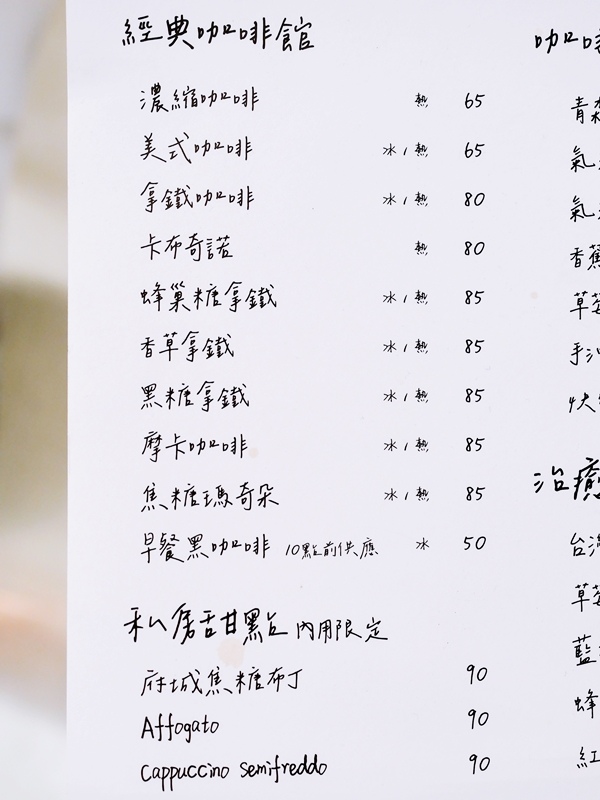 經典咖啡館
濃縮咖啡 熱 65
美式咖啡 冰/熱 65
拿鐵咖啡 冰/熱 80
卡布奇諾 熱 80
蜂巢糖拿鐵 冰/熱 85
香草拿鐵 冰/熱 85
黑糖拿鐵 冰/熱 85
摩卡咖啡 冰/熱 85
焦糖瑪奇朵 冰/熱 85
早餐黑咖啡 10點前供應 冰 50
私房甜點 內用限定
府城焦糖布丁 90
Affogato 90
Cappuccino semifreddo 90
咖
青
氣
氣
香蕉
草
手
治癒
台
草
藍
蜂
紅